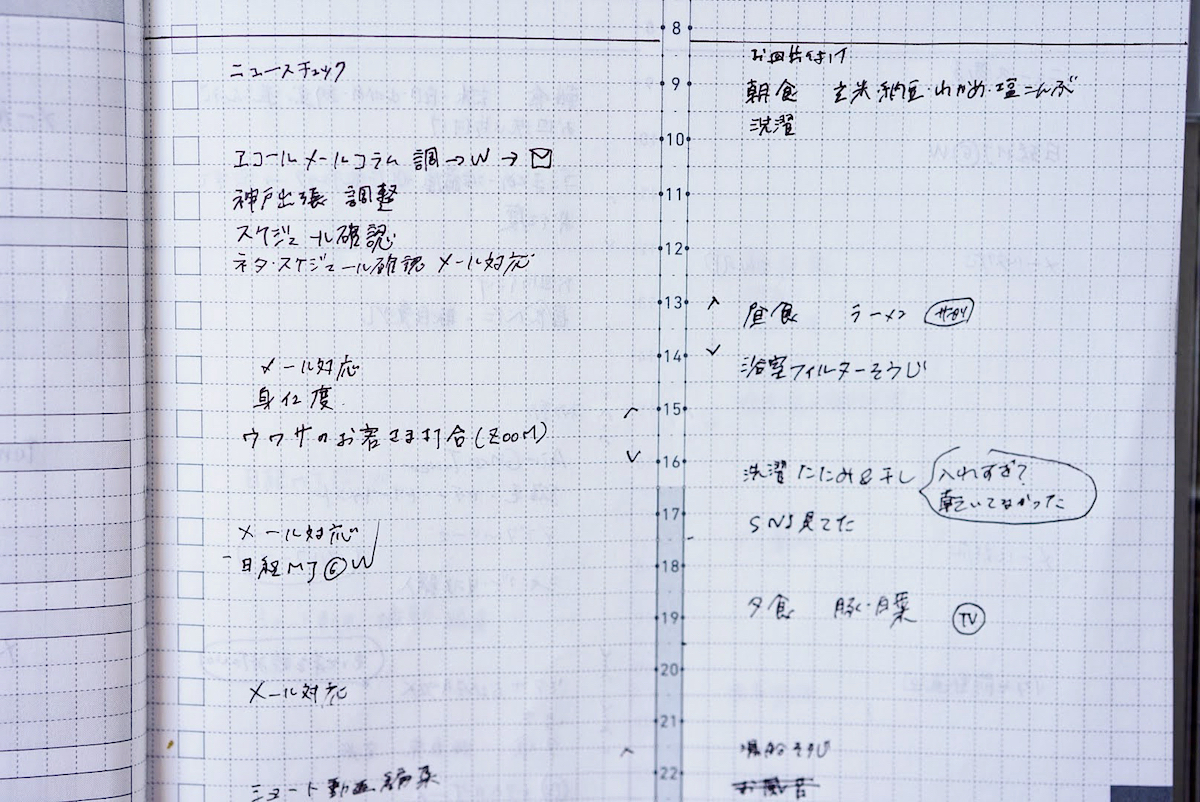 8
お皿片付け
ニュースチェック
9
朝食 玄米・納豆・わかめ・塩こんぶ
洗濯
10
エコールメールコラム 調→W→
神戸出張 調整
11
スケジュール確認
12
ネタ・スケジュール確認 メール対応
13
昼食 ラーメン
14
メール対応
浴室フィルターそうじ
身仕度
15
ウワサのお客さま打合(ZOOM)
16
洗濯たたみ&干し
入れすぎて
乾いてなかった
17
SNS見てた
メール対応
日経MJ⑥W
18
夕食 豚・白菜
TV
19
20
メール対応
21
そうじ
22
ショート動画編集
お風呂